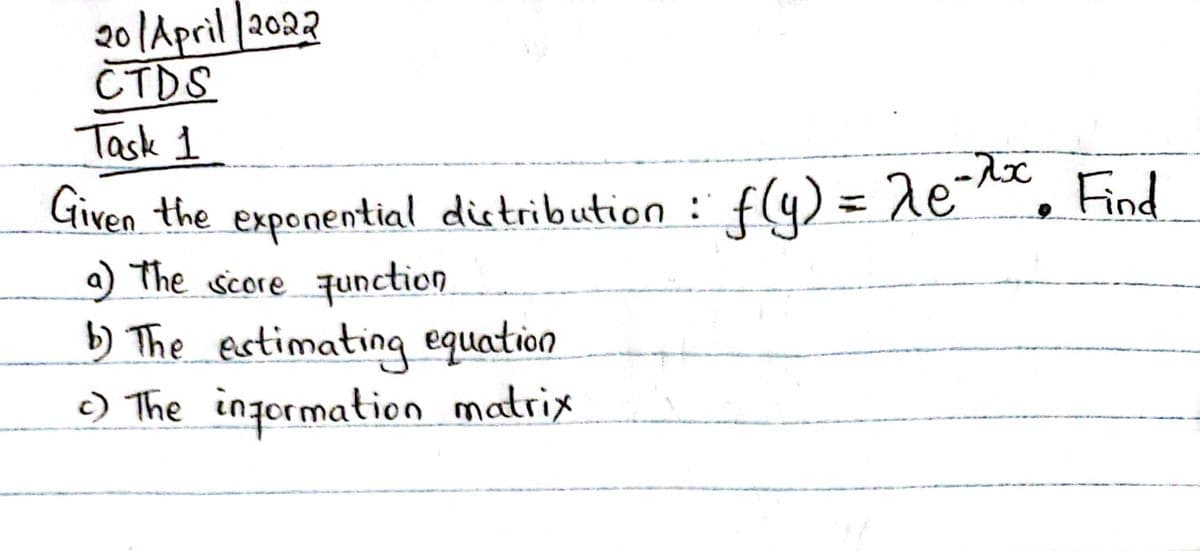 20/April/2022
CTDS
Task 1
Given the exponential distribution : f(y) = λe^-λx. Find
a) The score function
b) The estimating equation
c) The information matrix